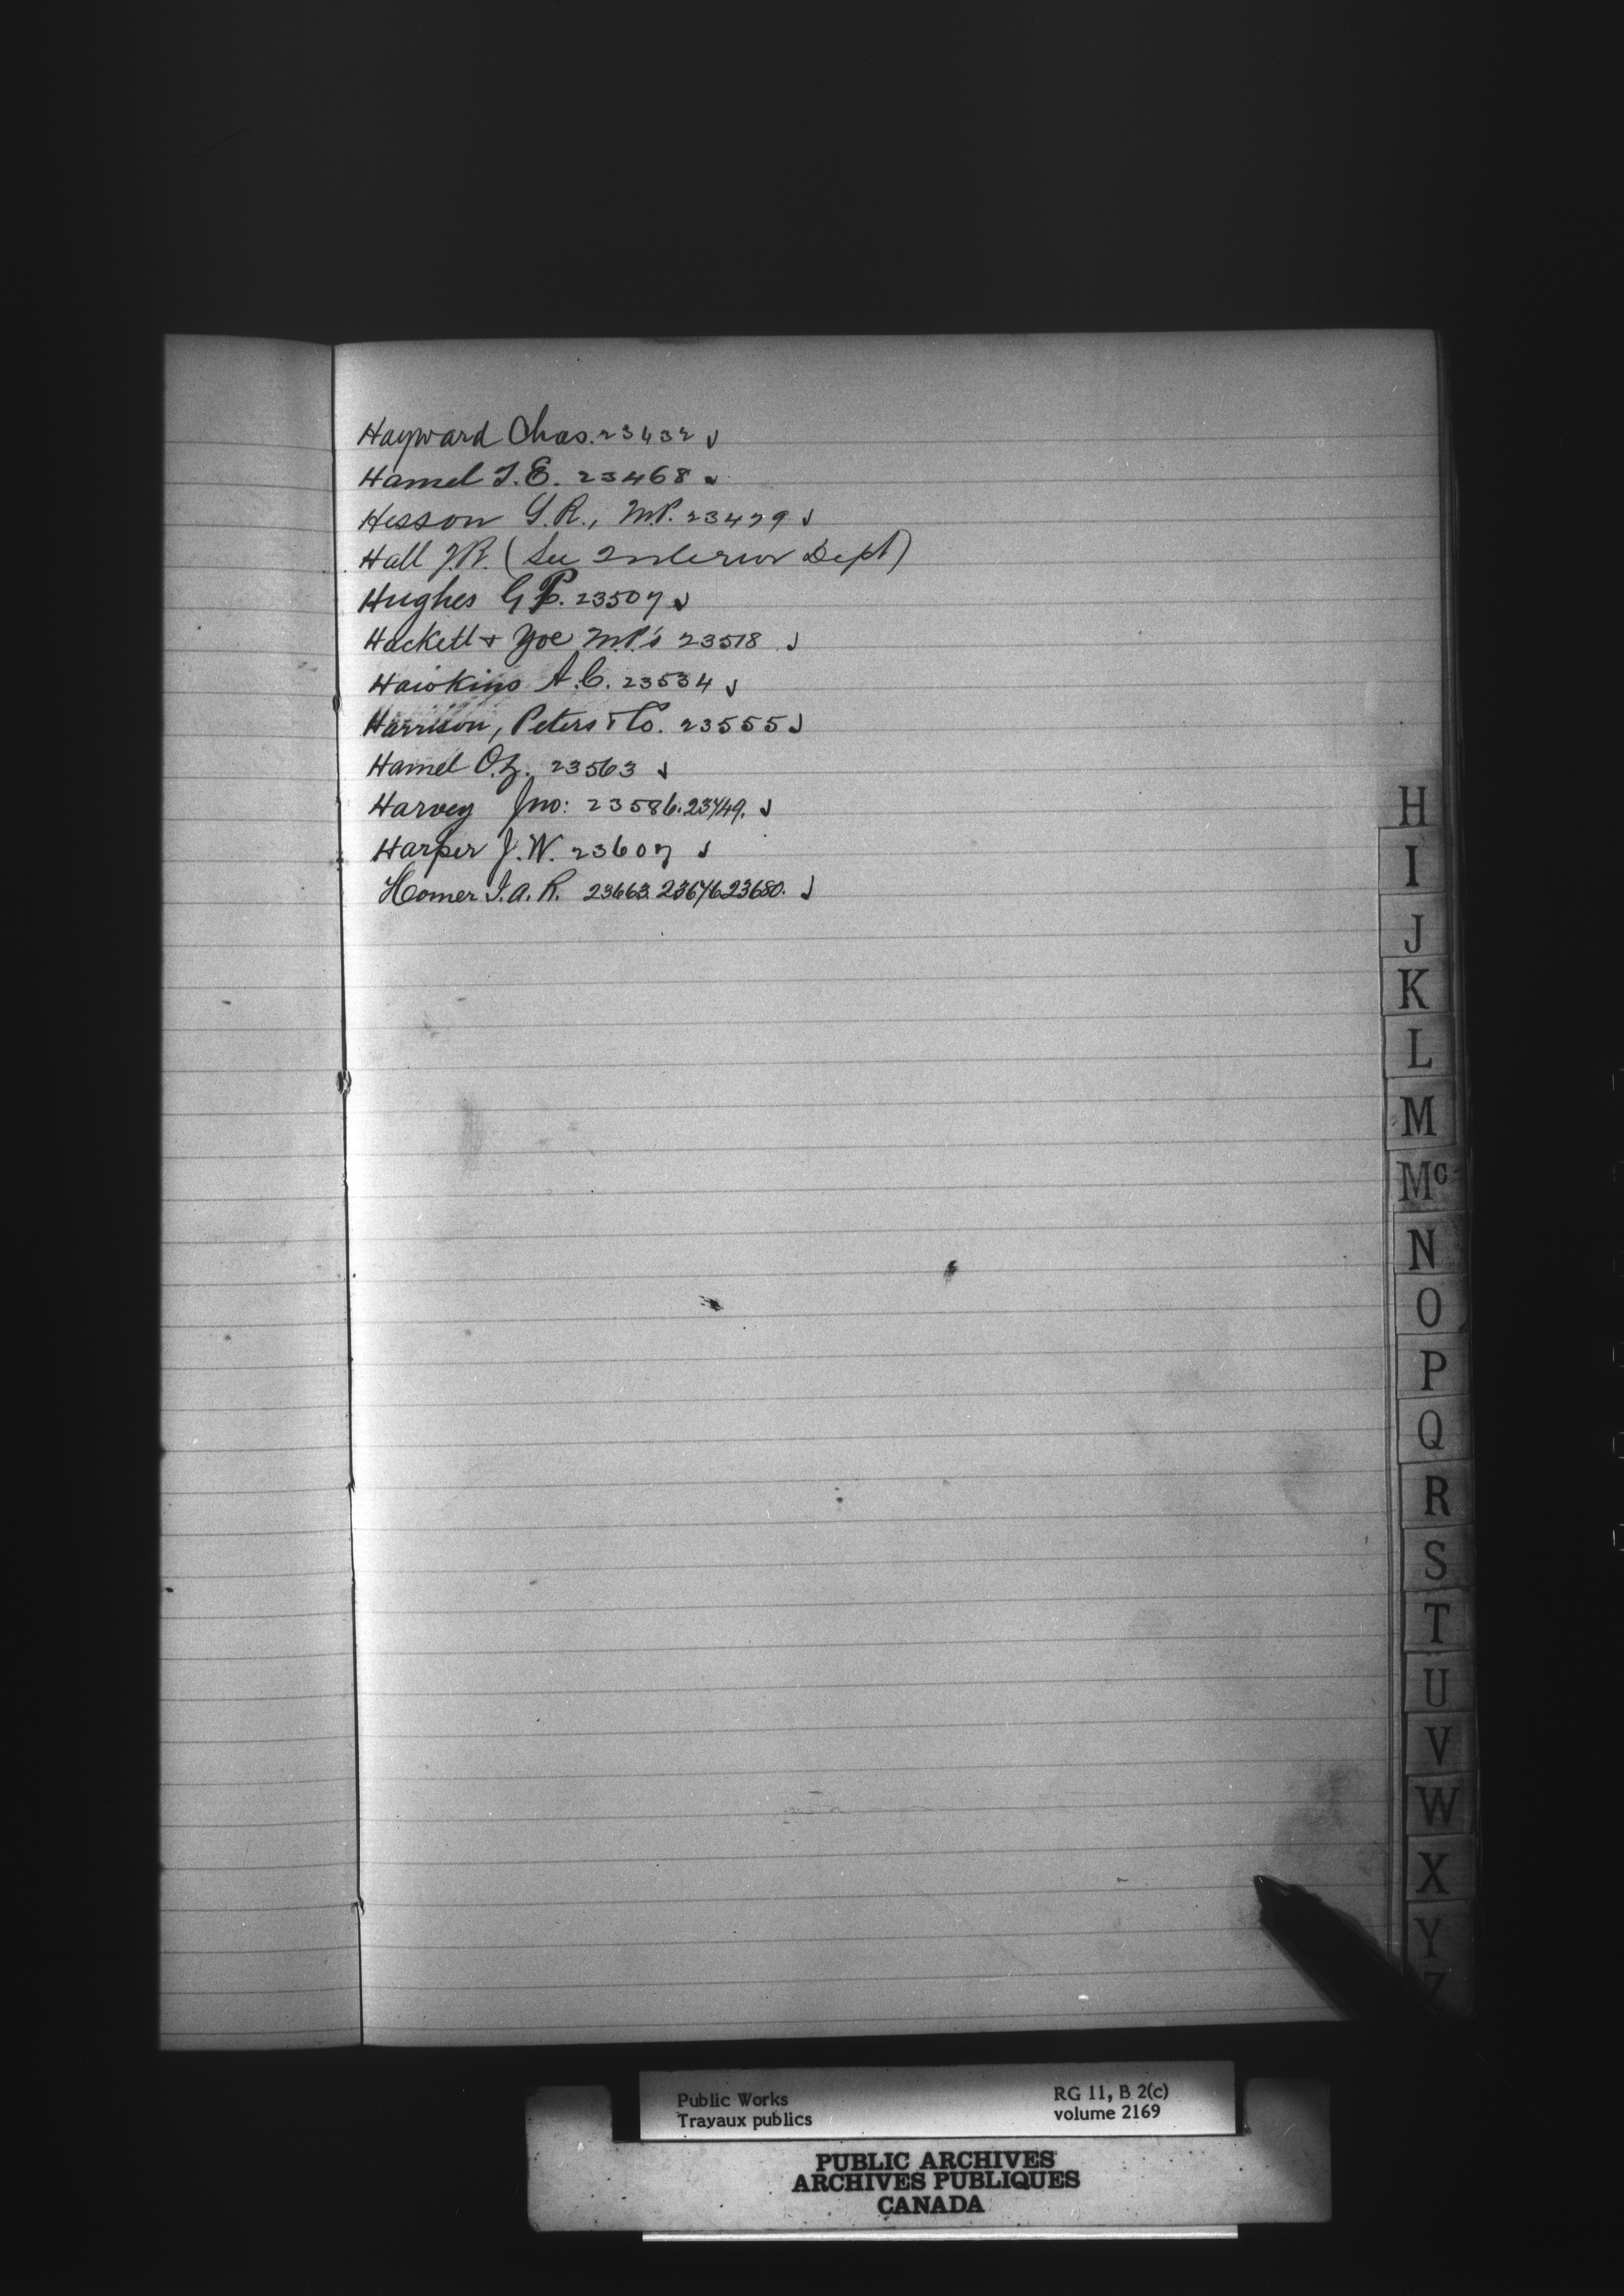 Hayward Chas. 23432 ✓
Hamel T. E. 23468 ✓
Hesson S. R., M.P. 23479 ✓
Hall J. R. (See Interior Dept)
Hughes G P. 23507 ✓
Hackett & Yeo M.P.'s 23518 ✓
Hawkins A. C. 23534 ✓
Harrison, Peters & Co. 23555 ✓
Hamel O. Z. 23563 ✓
Harvey Jno: 23586. 23749. ✓
Harper J. W. 23607 ✓
Homer J. A. R. 23663. 23676 23680. ✓
H
I
J
K
L
M
Mc
N
O
P
Q
R
S
T
U
V
W
X
Y
Z
Public Works RG 11, B 2(c)
Travaux publics volume 2169
PUBLIC ARCHIVES
ARCHIVES PUBLIQUES
CANADA